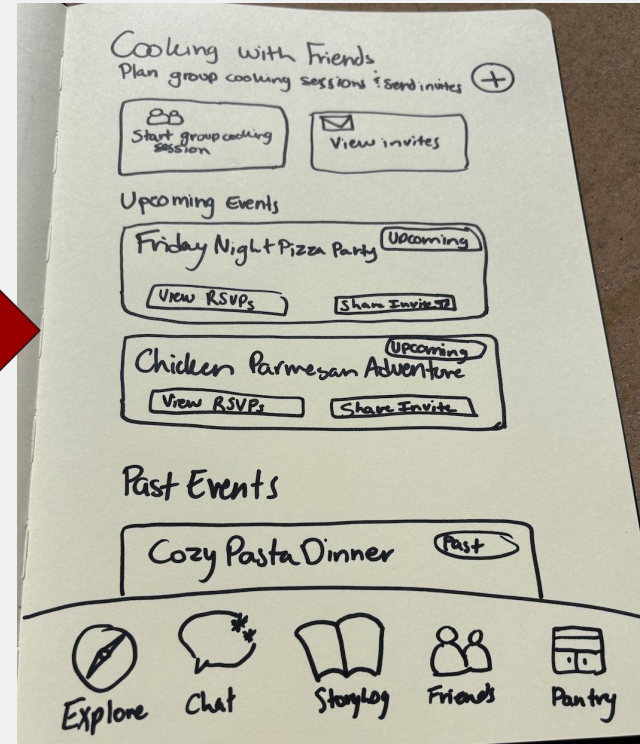 Cooking with Friends
Plan group cooking sessions & send invites +
Start group cooking
session
View invites
Upcoming Events
Friday Night Pizza Party
Upcoming
View RSVPs
Share Invite
Chicken Parmesan Adventure
Upcoming
View RSVPs
Share Invite
Past Events
Cozy Pasta Dinner
Past
Explore
Chat
Storylog
Friends
Pantry